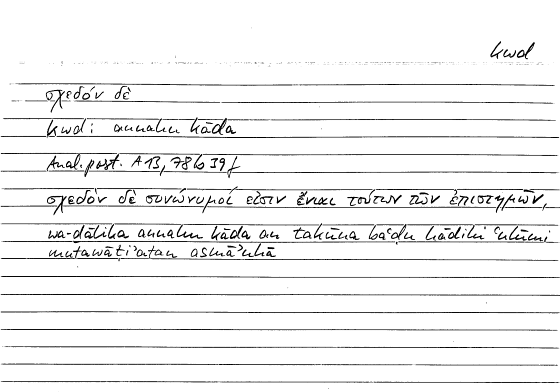 kwd
σχεδόν δὲ
kwd: annahu kāda
Anal. post. A 13, 78 b 39 f
σχεδὸν δὲ συνώνυμοί εἰσιν ἔνιαι τούτων τῶν ἐπιστημῶν,
wa-ḏālika annahu kāda an takūna baʿḍu hāḏihi ʾl-ʿulūmi
mutawāṭiʾatan asmāʾuhā